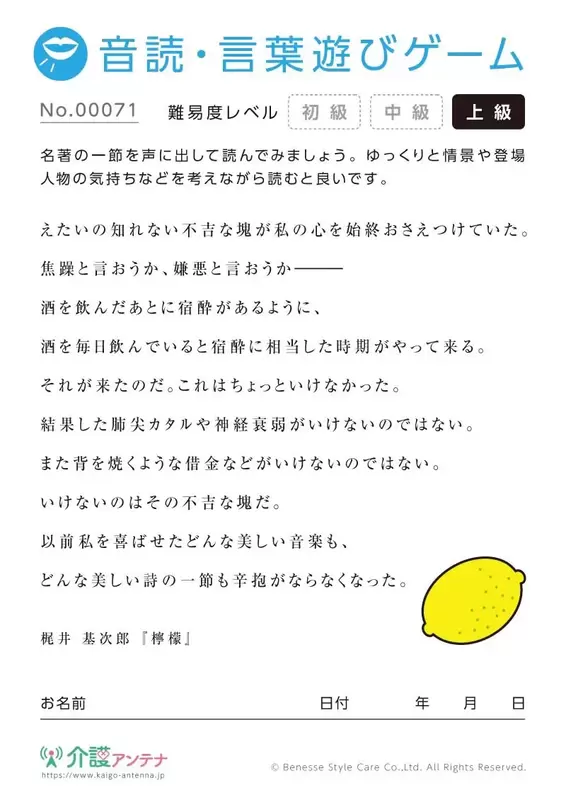 音読・言葉遊びゲーム
No.00071 難易度レベル 初級 中級 上級
名著の一節を声に出して読んでみましょう。ゆっくりと情景や登場
人物の気持ちなどを考えながら読むと良いです。
えたいの知れない不吉な塊が私の心を始終おさえつけていた。
焦躁と言おうか、嫌悪と言おうか―――
酒を飲んだあとに宿酔があるように、
酒を毎日飲んでいると宿酔に相当した時期がやって来る。
それが来たのだ。これはちょっといけなかった。
結果した肺尖カタルや神経衰弱がいけないのではない。
また背を焼くような借金などがいけないのではない。
いけないのはその不吉な塊だ。
以前私を喜ばせたどんな美しい音楽も、
どんな美しい詩の一節も辛抱がならなくなった。
梶井 基次郎 『檸檬』
お名前 日付 年 月 日
介護アンテナ
https://www.kaigo-antenna.jp/
© Benesse Style Care Co.,Ltd. All Rights Reserved.